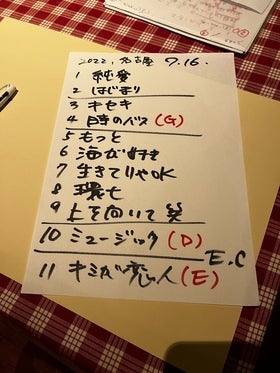 2022. 名古屋 7.16.
1 純愛
2 はじまり
3 キセキ
4 時のバス (G)
5 もっと
6 海が好き
7 生きてりゃOK
8 環七
9 上を向いて笑
10 ミュージック (D)
E.C
11 キミが恋人 (E)